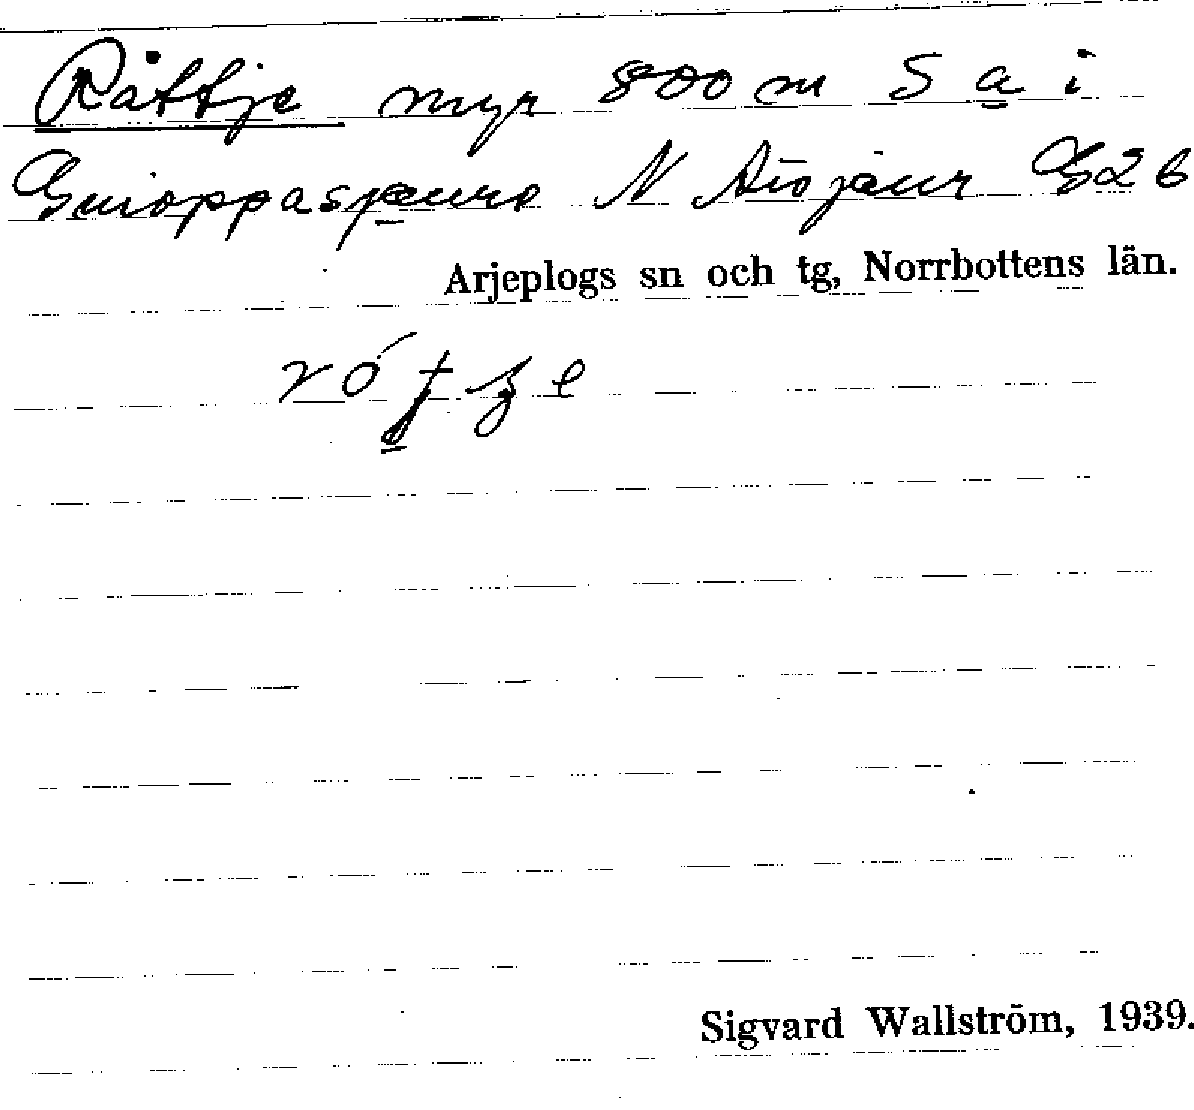 Råttje myr 800 m S a i
Guioppasjaure N Aisjaur G26
Arjeplogs sn och tg, Norrbottens län.
Sigvard Wallström, 1939.